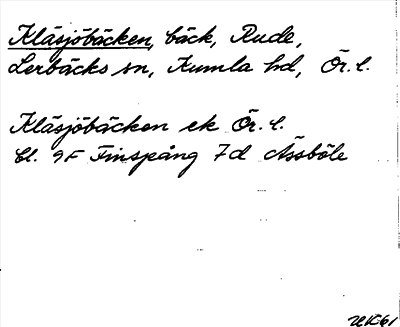 Kläsjöbäcken, bäck, Rude,
Lerbäcks sn, Kumla hd, Ör. l.
Kläsjöbäcken ek Ör. l.
Bl. 9F Finspång 7d Åssböle